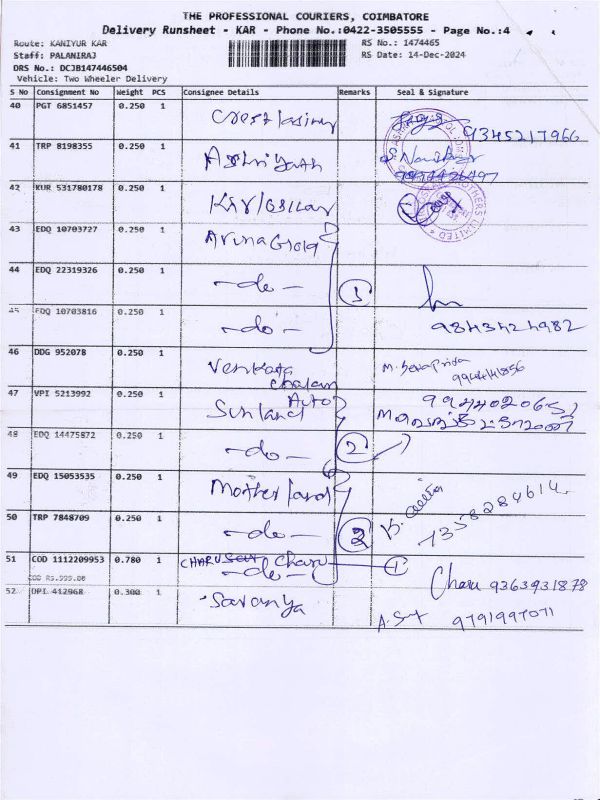 THE PROFESSIONAL COURIERS, COIMBATORE
Delivery Runsheet - KAR - Phone No.:0422-3505555 - Page No.:4
Route: KANIYUR KAR
RS No.: 1474465
Staff: PALANIRAJ
RS Date: 14-Dec-2024
DRS No.: DCJB147446504
Vehicle: Two Wheeler Delivery
S No Consignment No Weight PCS Consignee Details Remarks Seal & Signature
40 PGT 6851457 0.250 1 9345217966
41 TRP 8198355 0.250 1
42 KUR 531780178 0.250 1
43 EDQ 10703727 0.250 1
44 EDQ 22319326 0.250 1 -do- 3
45 EDQ 10703816 0.250 1 -do- 9843424982
46 DDG 952078 0.250 1 Venkata
chalam
47 VPI 5213992 0.250 1 Sunland Auto
48 EDQ 14475872 0.250 1 -do- 2
49 EDQ 15053535 0.250 1 Motherland
50 TRP 7848709 0.250 1 -do-
51 COD 1112209953 0.780 1 Charu 1
COD RS.999.00 -do- Charu 9363931878
52 DPI 412968 0.300 1 Saranya 9791997071